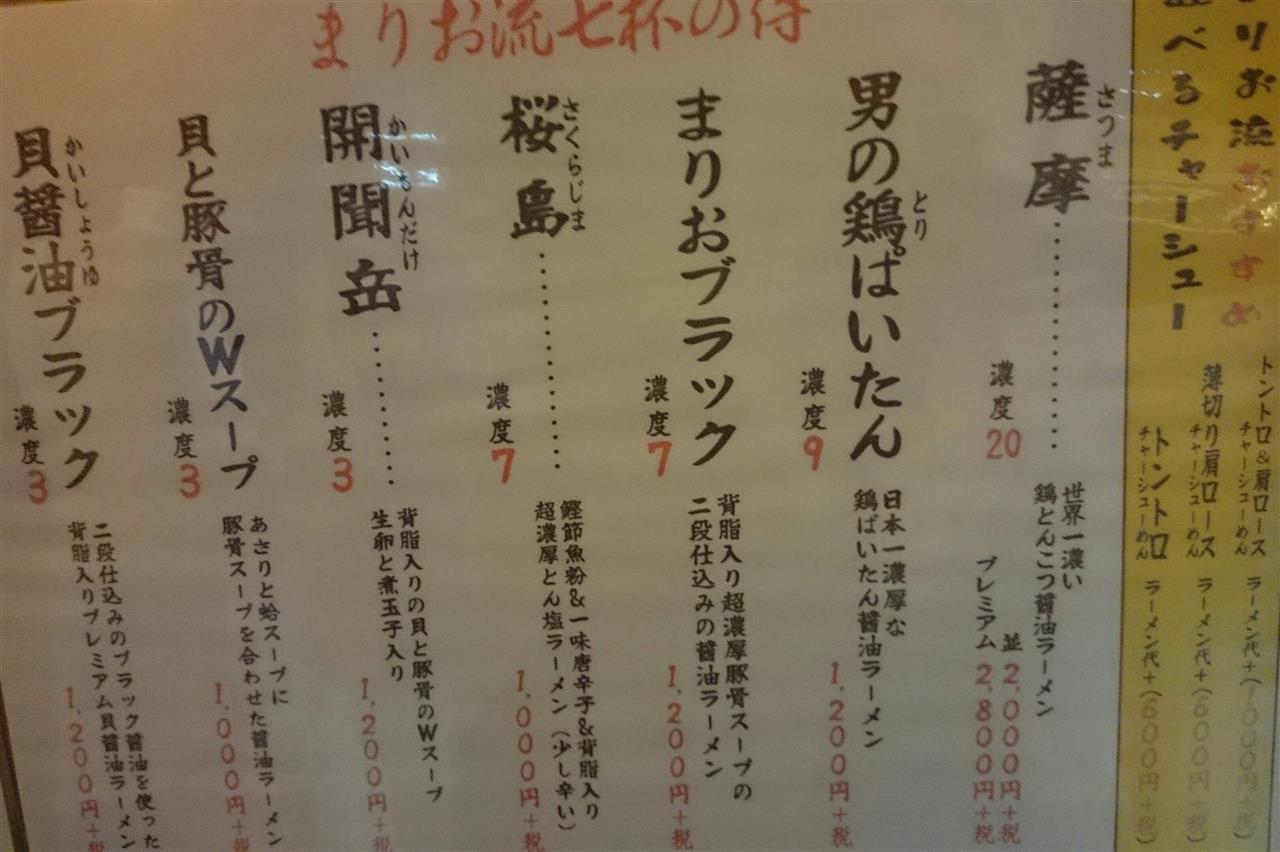 まりお流七杯の侍
まりお流おすすめ
並べるチャーシュー
トントロ&肩ロース
チャーシューめん
ラーメン代+(1000円+税)
薄切り肩ロース
チャーシューめん
ラーメン代+(600円+税)
トントロ
チャーシューめん
ラーメン代+(600円+税)
さつま
薩摩
濃度20
世界一濃い
鶏とんこつ醤油ラーメン
並 2,000円+税
プレミアム 2,800円+税
とり
男の鶏ぱいたん
濃度9
日本一濃厚な
鶏ぱいたん醤油ラーメン
1,200円+税
まりおブラック
濃度7
背脂入り超濃厚豚骨スープの
二段仕込みの醤油ラーメン
1,200円+税
さくらじま
桜島
濃度7
鰹節魚粉&一味唐辛子&背脂入り
超濃厚とん塩ラーメン(少し辛い)
1,000円+税
かいもんだけ
開聞岳
濃度3
背脂入りの貝と豚骨のWスープ
生卵と煮玉子入り
1,200円+税
貝と豚骨のWスープ
濃度3
あさりと蛤スープに
豚骨スープを合わせた醤油ラーメン
1,000円+税
かいしょうゆ
貝醤油ブラック
濃度3
二段仕込みのブラック醤油を使った
背脂入りプレミアム貝醤油ラーメン
1,200円+税